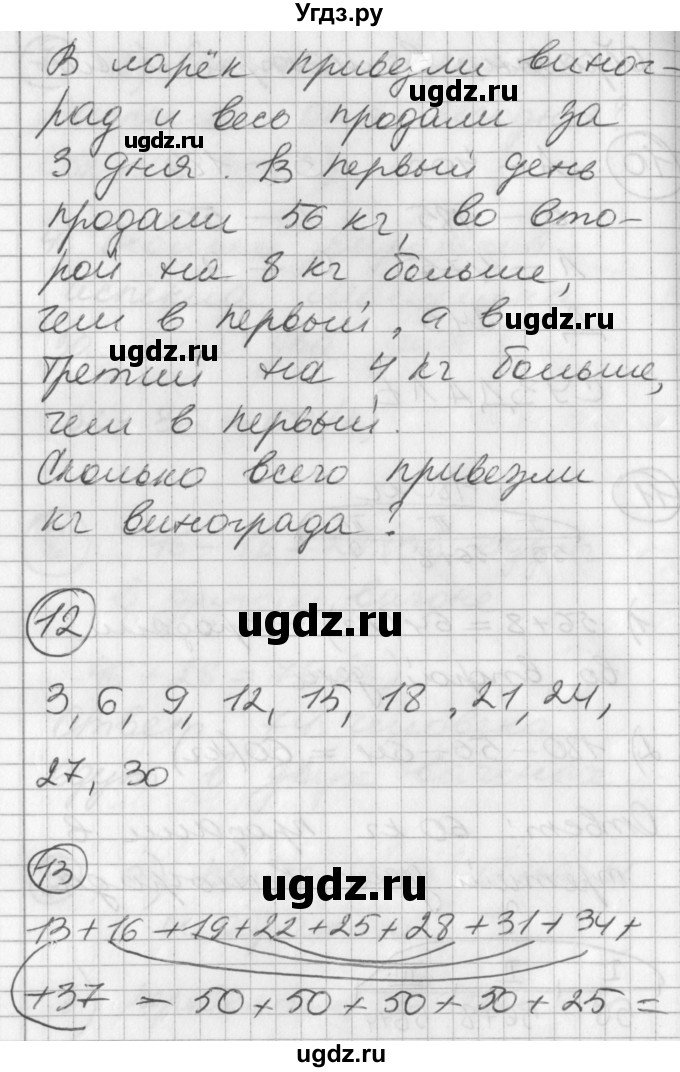 Угдз.ру
В ларёк привезли виног-
рад и весь продали за
3 дня. В первый день
продали 56 кг, во вто-
рой на 8 кг больше,
чем в первый, а в
третий на 4 кг больше,
чем в первый.
Сколько всего привезли
кг винограда?
12
3, 6, 9, 12, 15, 18, 21, 24,
27, 30
13
13+16+19+22+25+28+31+34+
+37 = 50+50+50+50+25=
ugdz.ru
ugdz.ru
ugdz.ru
ugdz.ru
ugdz.ru
ugdz.ru
ugdz.ru
ugdz.ru